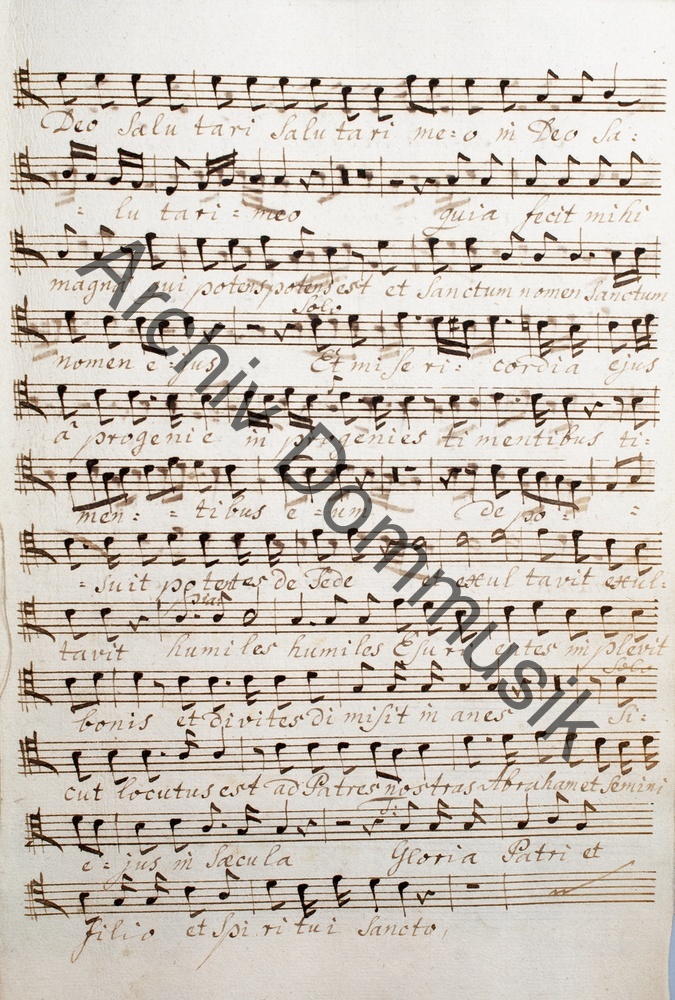 Deo Salu tari Salu tari me=o in Deo Sa=
= lu tari=meo quia fecit mihi
magna qui potens potens est et Sanctum nomen Sanctum
Solo
nomen e=jus Et mise ri= cordia ejus
â progenie in progenies ti mentibus ti=
men= = tibus e=um de po= =
=suit potentes de Sede et exul tavit exul=
pia:
tavit humiles humiles Esuri entes implevit
Solo
bonis et divites di misit in anes Si=
cut locutus est ad Patres nostras Abraham et Semini
T:
e=jus in Sæcula Gloria Patri et
filio et Spi ri tui Sancto,
Archiv Dommusik